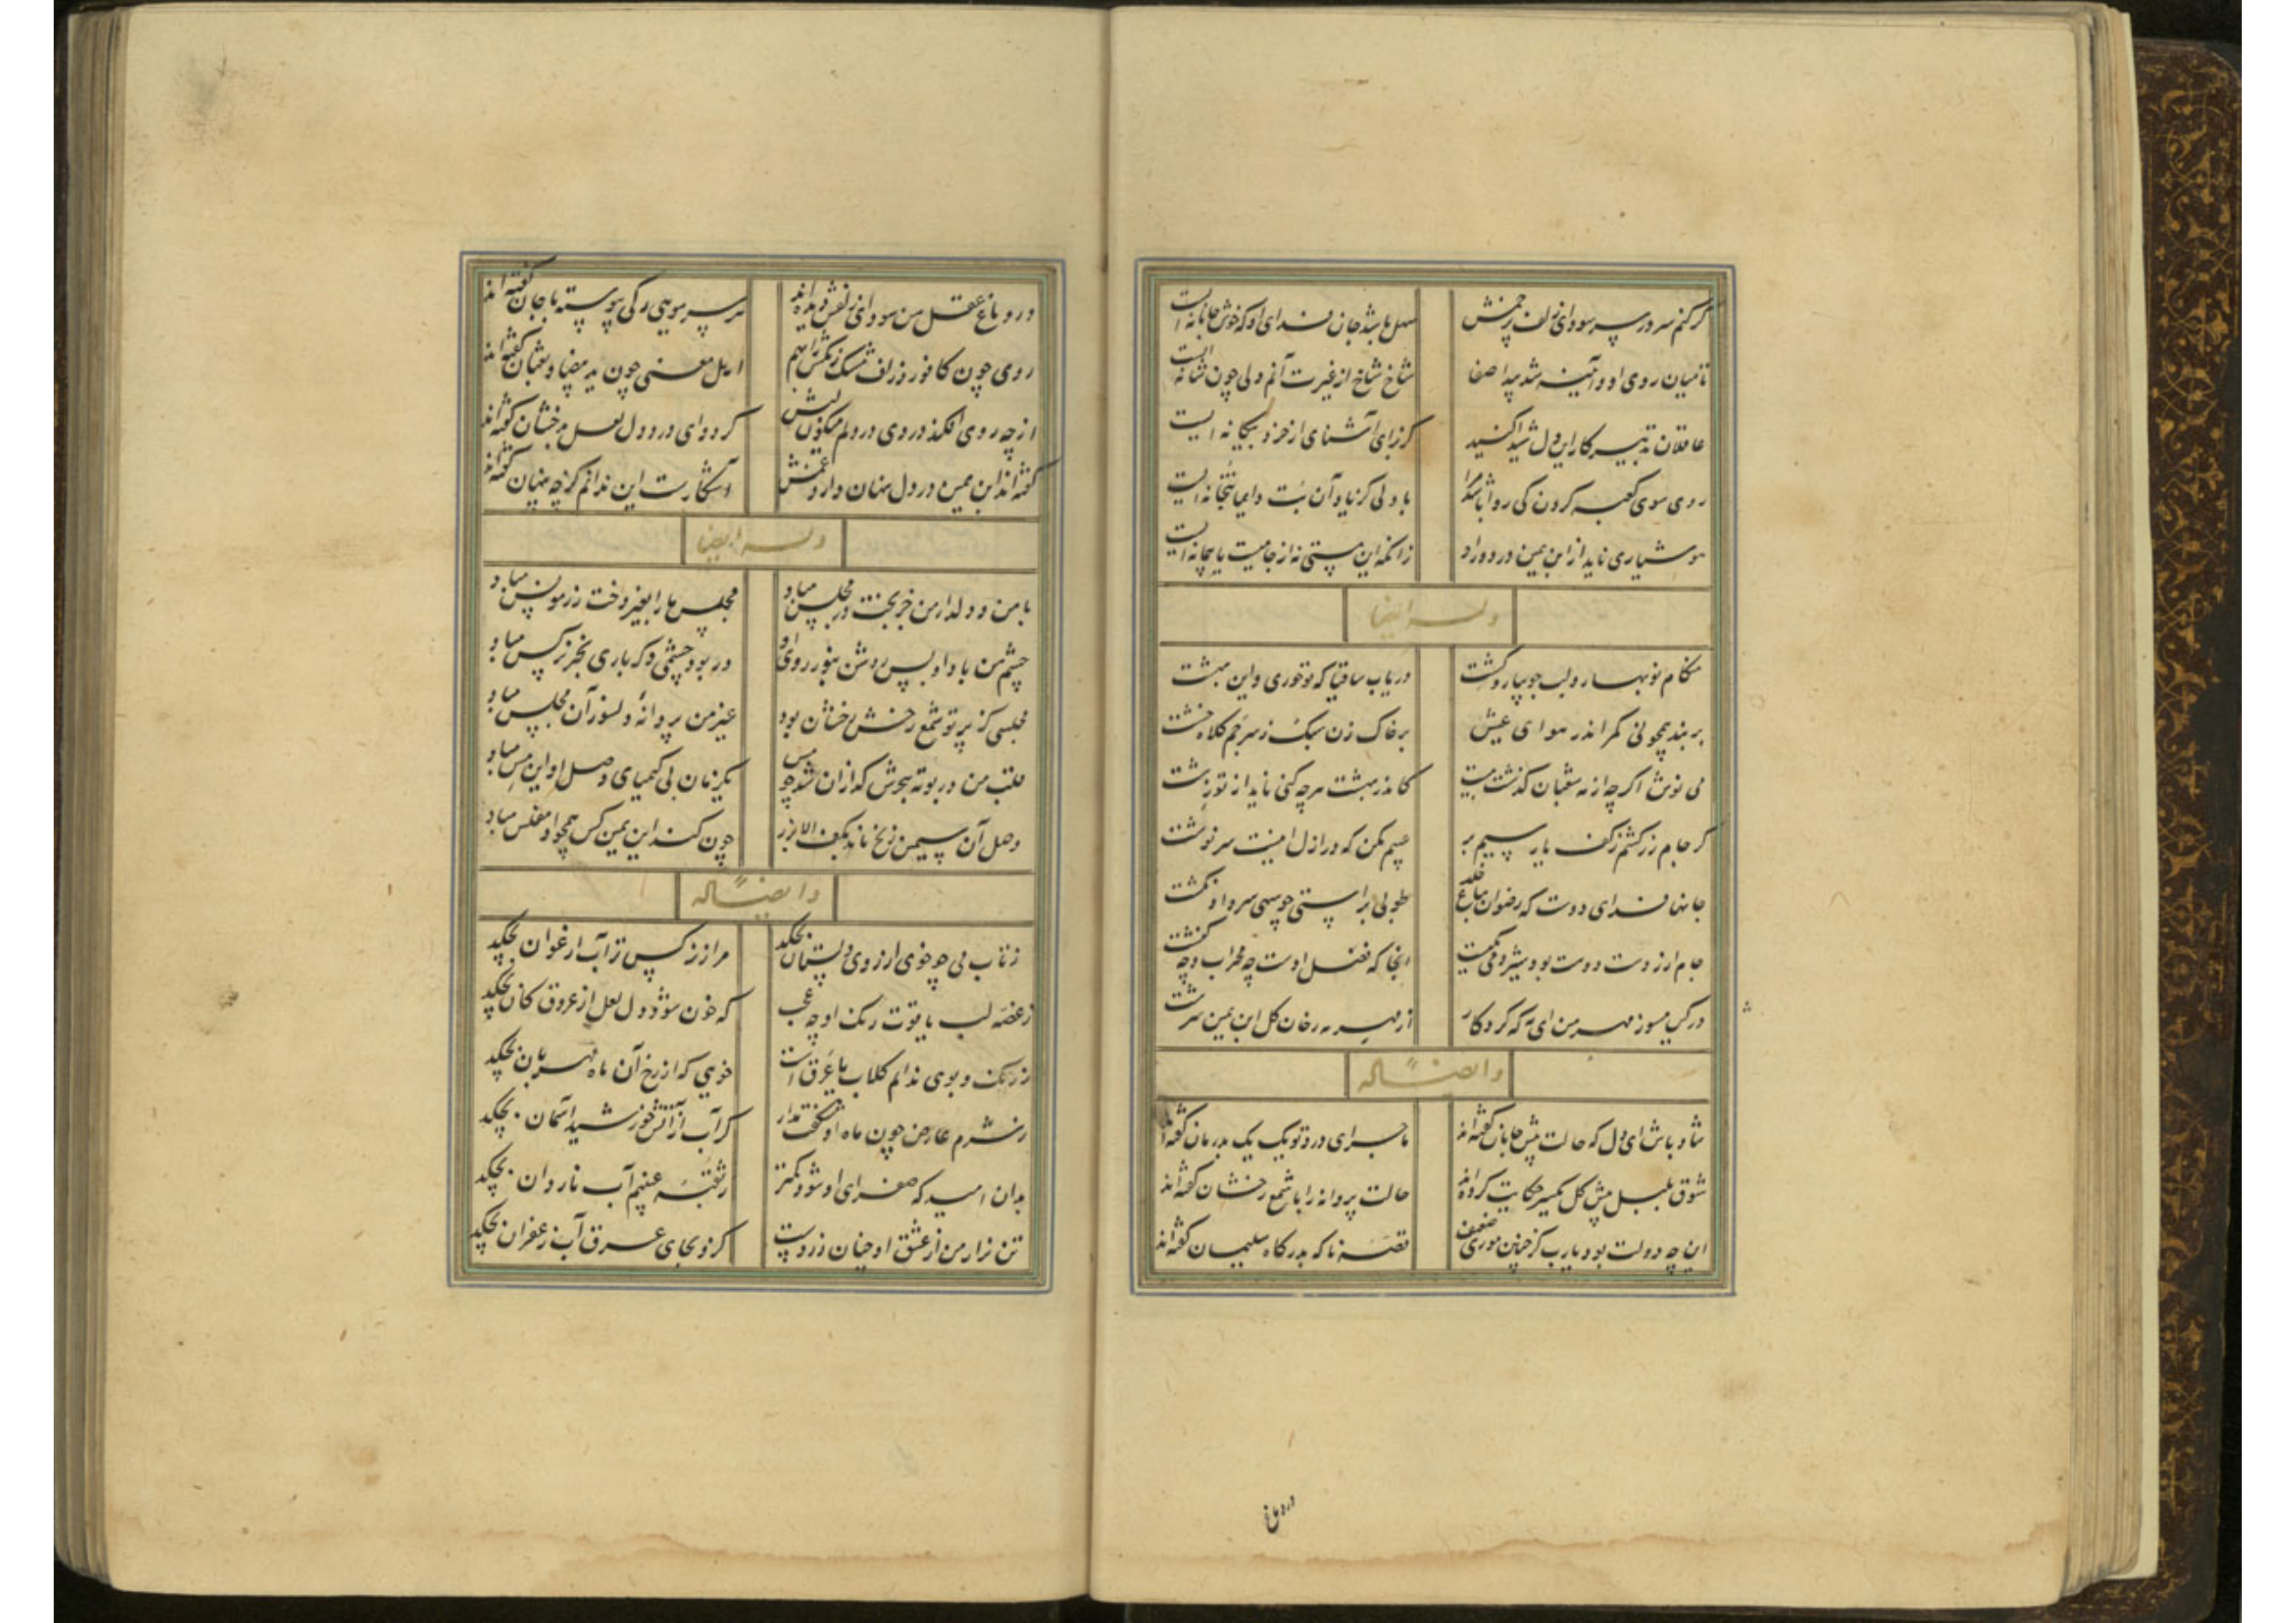 گر کنم سر در سر سودای زلف پر خمش
سهل باشد جان فدای او که خوش جانانه ایست
تا میان روی او و آئینه شد پیدا صفا
شاخ شاخ از غیرت آنم دلی چون شانه ایست
عاقلان تدبیر کار این دل شیدا کنید
کز برای آشنای از خرد بیگانه ایست
روی سوی کعبه کردن کی روا باشد مرا
با دلی کز یاد آن بت دایما بتخانه ایست
هوشیاری ناید از ابن یمین در دور او
زانکه این مستی نه از جامیست یا پیمانه ایست
وله ایضا
هنگام نوبهار و لب جویبار و کشت
دریاب ساقیا که تو حوری و این بهشت
بر بند همچو نی کمر اندر هوای عیش
بر خاک زن سبک ز سر خم کلاه خشت
می نوش اگر چه از مه شعبان گذشت بیست
کاندر بهشت هر چه کنی ناید از تو زشت
گر جام زر کشم ز کف یار سیم بر
عیبم مکن که در ازل اینست سرنوشت
جانها فدای دوست که رضوان بباغ خلد
طوبی براستی چو سهی سرو او نکشت
جام ار ز دست دوست بود شیر و می یکیست
آنجا که فضل اوست چه محراب و چه کنشت
در کین مسوز مهر من ای مه که کردگار
از مهر مه رخان گل ابن یمین سرشت
و ایضاً له
شاد باش ای دل که حالت پیش جانان گفته اند
ماجرای درد تو یک یک بدرمان گفته اند
شوق بلبل پیش گل یکسر حکایت کرده اند
حالت پروانه را با شمع رخشان گفته اند
این چه دولت بود یارب کز چنین موری ضعیف
قصه نا که بدرگاه سلیمان گفته اند
در دماغ
در دماغ عقل من سودای زلفش دیده اند
هر سر مویی رگی پیوسته با جان گفته اند
روی چون کافور و زلف مشک رنگش را بهم
اهل معنی چون ید بیضا و ثعبان گفته اند
از چه روی افکند دردی در دلم میگون لبش
گر دوای درد دل لعل بدخشان گفته اند
گفته اند ابن یمین در دل نهان دارد غمش
آشکارست این ندانم کز چه پنهان گفته اند
وله ایضا
با من و دلدار من جز بخت در مجلس مباد
مجلس ما را بغیر دخت رز مونس مباد
چشم من بادا و بس روشن بنور روی او
در بود چشمی دگر باری بجز نرگس مباد
مجلسی کز پرتو شمع رخش رخشان بود
غیر من پروانه دلسوز آن مجلس مباد
قلب من در بوته هجرش گدازان شد چو مس
یکزمان بی کیمیای وصل او این مس مباد
وصل آن سیمین زنخ ناید بکف الا بزر
چون کند ابن یمین کس همچو او مفلس مباد
و ایضاً له
ز تاب می چو خوی از روی دلستان بچکد
مرا ز نرگس تر آب ارغوان بچکد
ز غصه لب یاقوت رنگ او چه عجب
که خون شود دل لعل از عروق کان بچکد
ز رنگ و بوی ندانم گلاب یا عرق است
خویی که از رخ آن ماه مهربان بچکد
ز شرم عارض چون ماه او شگفت مدار
گر آب از آتش خورشید آسمان بچکد
بدان امید که صفرای او شود کمتر
ز شقه عینم آب ناردان بچکد
تن نزار من از عشق او چنان زردست
کزو بجای عرق آب زعفران بچکد